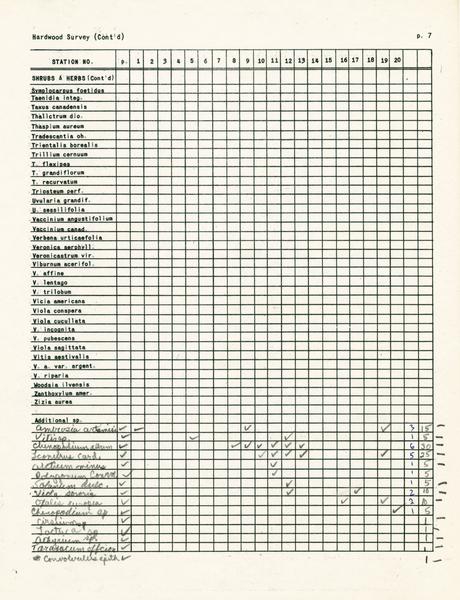 Hardwood Survey (Cont'd) p. 7
STATION NO. p. 1 2 3 4 5 6 7 8 9 10 11 12 13 14 15 16 17 18 19 20
SHRUBS & HERBS (Cont'd)
Symplocarpus foetidus
Taenidia integ.
Taxus canadensis
Thalictrum dio.
Thaspium aureum
Tradescantia oh.
Trientalis borealis
Trillium cernuum
T. flexipes
T. grandiflorum
T. recurvatum
Triosteum perf.
Uvularia grandif.
U. sessilifolia
Vaccinium angustifolium
Vaccinium canad.
Verbena urticaefolia
Veronica serphyll.
Veronicastrum vir.
Viburnum acerifol.
V. affine
V. lentago
V. trilobum
Vicia americana
Viola conspera
Viola cucullata
V. incognita
V. pubescens
Viola sagittata
Vitis aestivalis
V. a. var. argent.
V. riparia
Woodsia ilvensis
Zanthoxylum amer.
Zizia aurea
Additional sp.
Ambrosia ✓ ✓ ✓ ✓ 3 15
Vitis sp. ✓ ✓ ✓ 1 5
Chenopodium album ✓ ✓ ✓ ✓ ✓ ✓ ✓ 6 30
Leonurus card. ✓ ✓ ✓ ✓ ✓ ✓ 5 25
Arctium minus ✓ ✓ 1 5
Polygonum Convol. ✓ ✓ 1 5
Solanum dulc. ✓ ✓ 1 5
Viola sororia ✓ ✓ ✓ 2 10
Oxalis europea ✓ ✓ ✓ 2 10
Chenopodium sp. ✓ ✓ 1 5
Cirsium sp ✓ 1
Lactuca sp ✓ 1
Athyrium sp. ✓ 1
Taraxacum officin ✓ 1
* Convolvulus ✓ 1